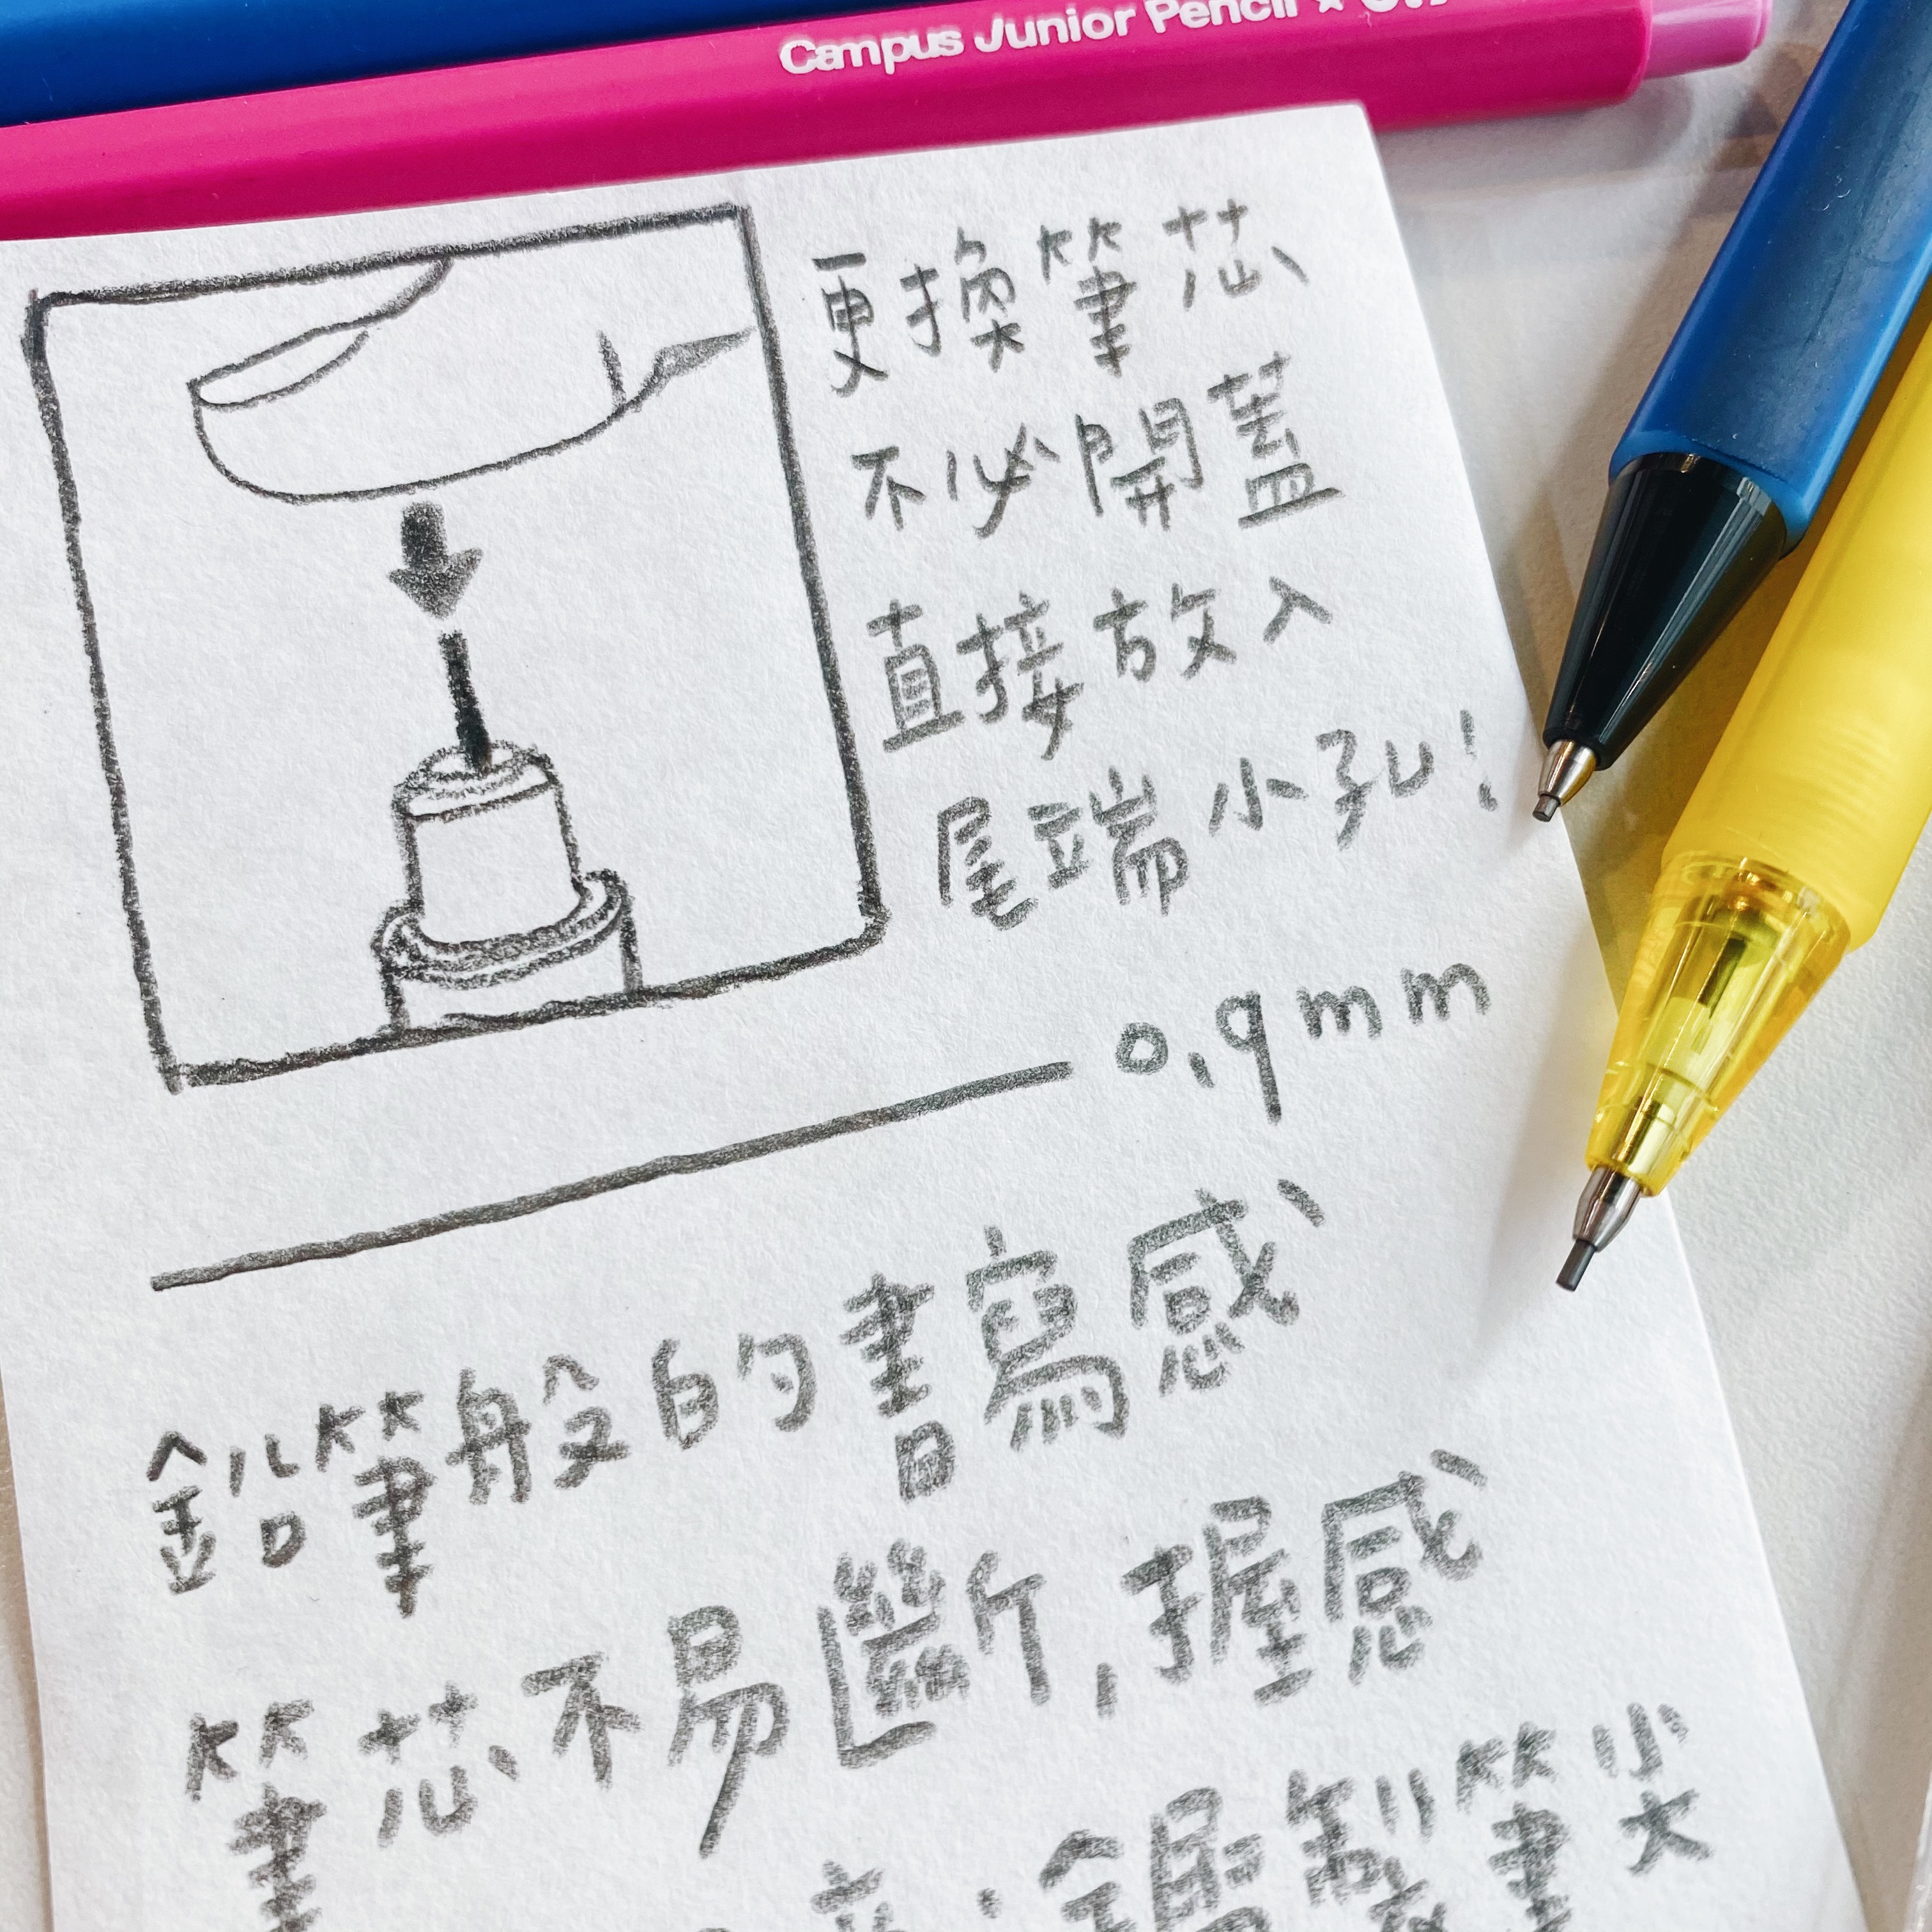 Campus Junior Pencil
更換筆芯
不必開蓋
直接放入
尾端小孔！
0.9mm
鉛筆般的書寫感
筆芯不易斷,握感
製筆尖